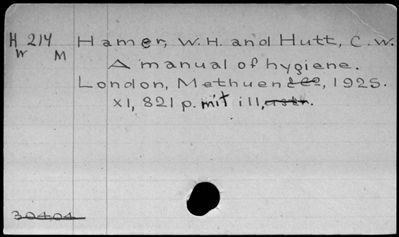 H 214 Hamer, W. H. and Hutt, C. W.
W M
A manual of hygiene.
London, Methuen & Co, 1925.
XI, 821 p. mit ill,
30404